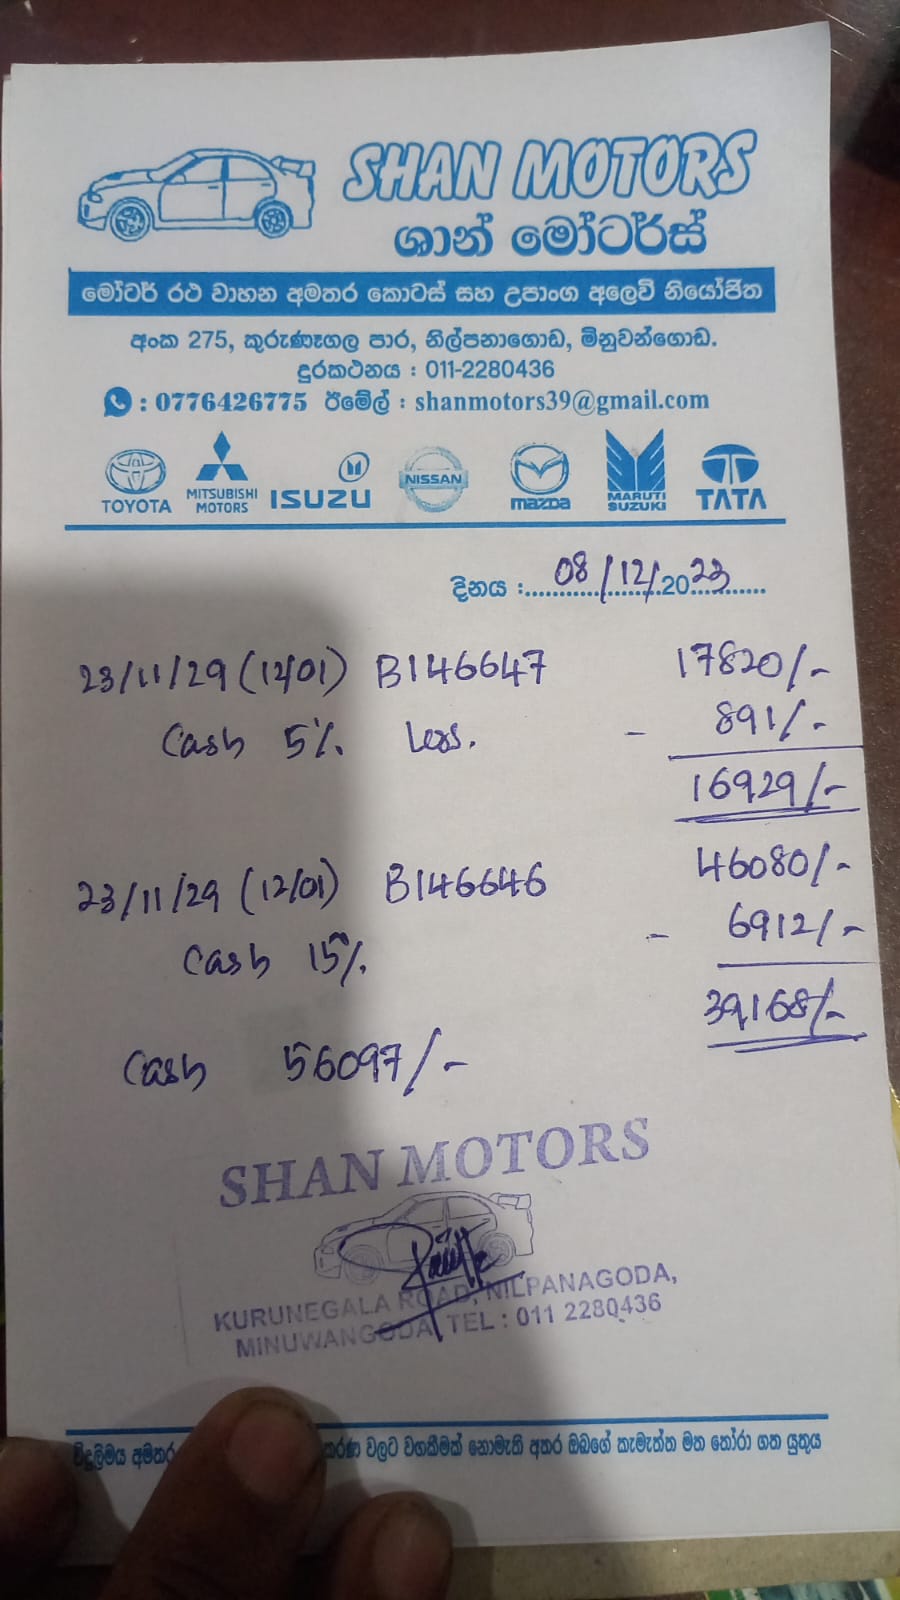 SHAN MOTORS
ශාන් මෝටර්ස්
මෝටර් රථ වාහන අමතර කොටස් සහ උපාංග අලෙවි නියෝජිත
අංක 275, කුරුණෑගල පාර, නිල්පනාගොඩ, මිනුවන්ගොඩ.
දුරකථනය : 011-2280436
: 0776426775 ඊමේල් : shanmotors39@gmail.com
TOYOTA MITSUBISHI MOTORS ISUZU NISSAN mazda MARUTI SUZUKI TATA
දිනය : 08/12/2023
23/11/29 (12/01) B146647 17820/-
Cash 5% Less. - 891/-
16929/-
23/11/29 (12/01) B146646 46080/-
Cash 15% - 6912/-
39,168/-
Cash 56097/-
SHAN MOTORS
KURUNEGALA ROAD, NILPANAGODA,
MINUWANGODA, TEL : 011 2280436
විදුලිමය අමතර කරණ වලට වගකීමක් නොමැති අතර ඔබගේ කැමැත්ත මත තෝරා ගත යුතුය